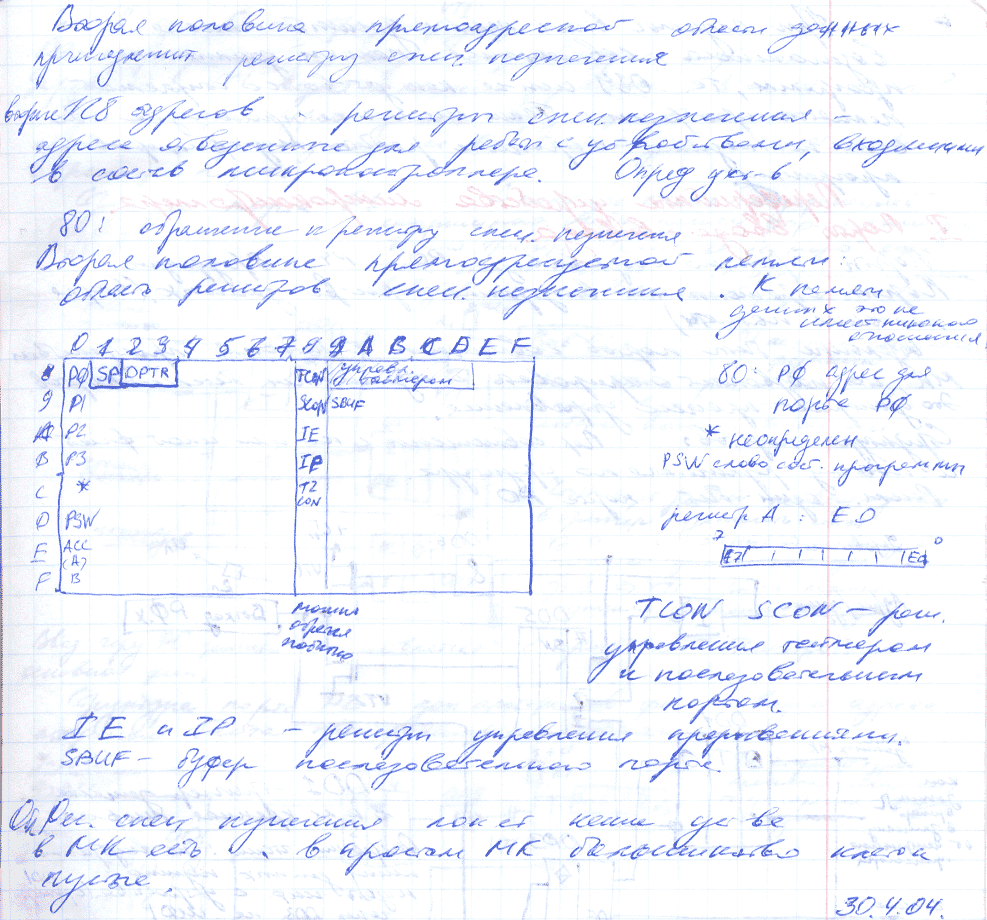 Вторая половина прямоадресной области данных
принадлежит регистру спец. назначения
адресов - регистры спец. назначения -
адреса отведенные для работы с устройствами, входящими
в состав микроконтроллера. Опред уст-в
80: обращение к регистру спец. назначения
Вторая половина прямоадресуемой памяти:
область регистров спец. назначения. К памяти
данных это не
имеет никакого
отношения!
0 1 2 3 4 5 6 7 8 9 A B C D E F
8 P0 SP DPTR TCON управл. таймером
9 P1 SCON SBUF
A P2 IE
B P3 IP
C * T2CON
D PSW
E ACC (A)
F B
можно
обращ
побитно
80: P0 адрес для
порта P0
* неопределен
PSW слово сост. программы
регистр A : E0
7 0
E7 E0
TCON SCON – рег.
управления таймером
и последовательным
портом.
IE и IP – регистры управления прерываниями.
SBUF – буфер последовательного порта
Рег. спец назначения какие уст-ва
в МК есть. в простом МК большинство клеток
пустые.
30.4.04.